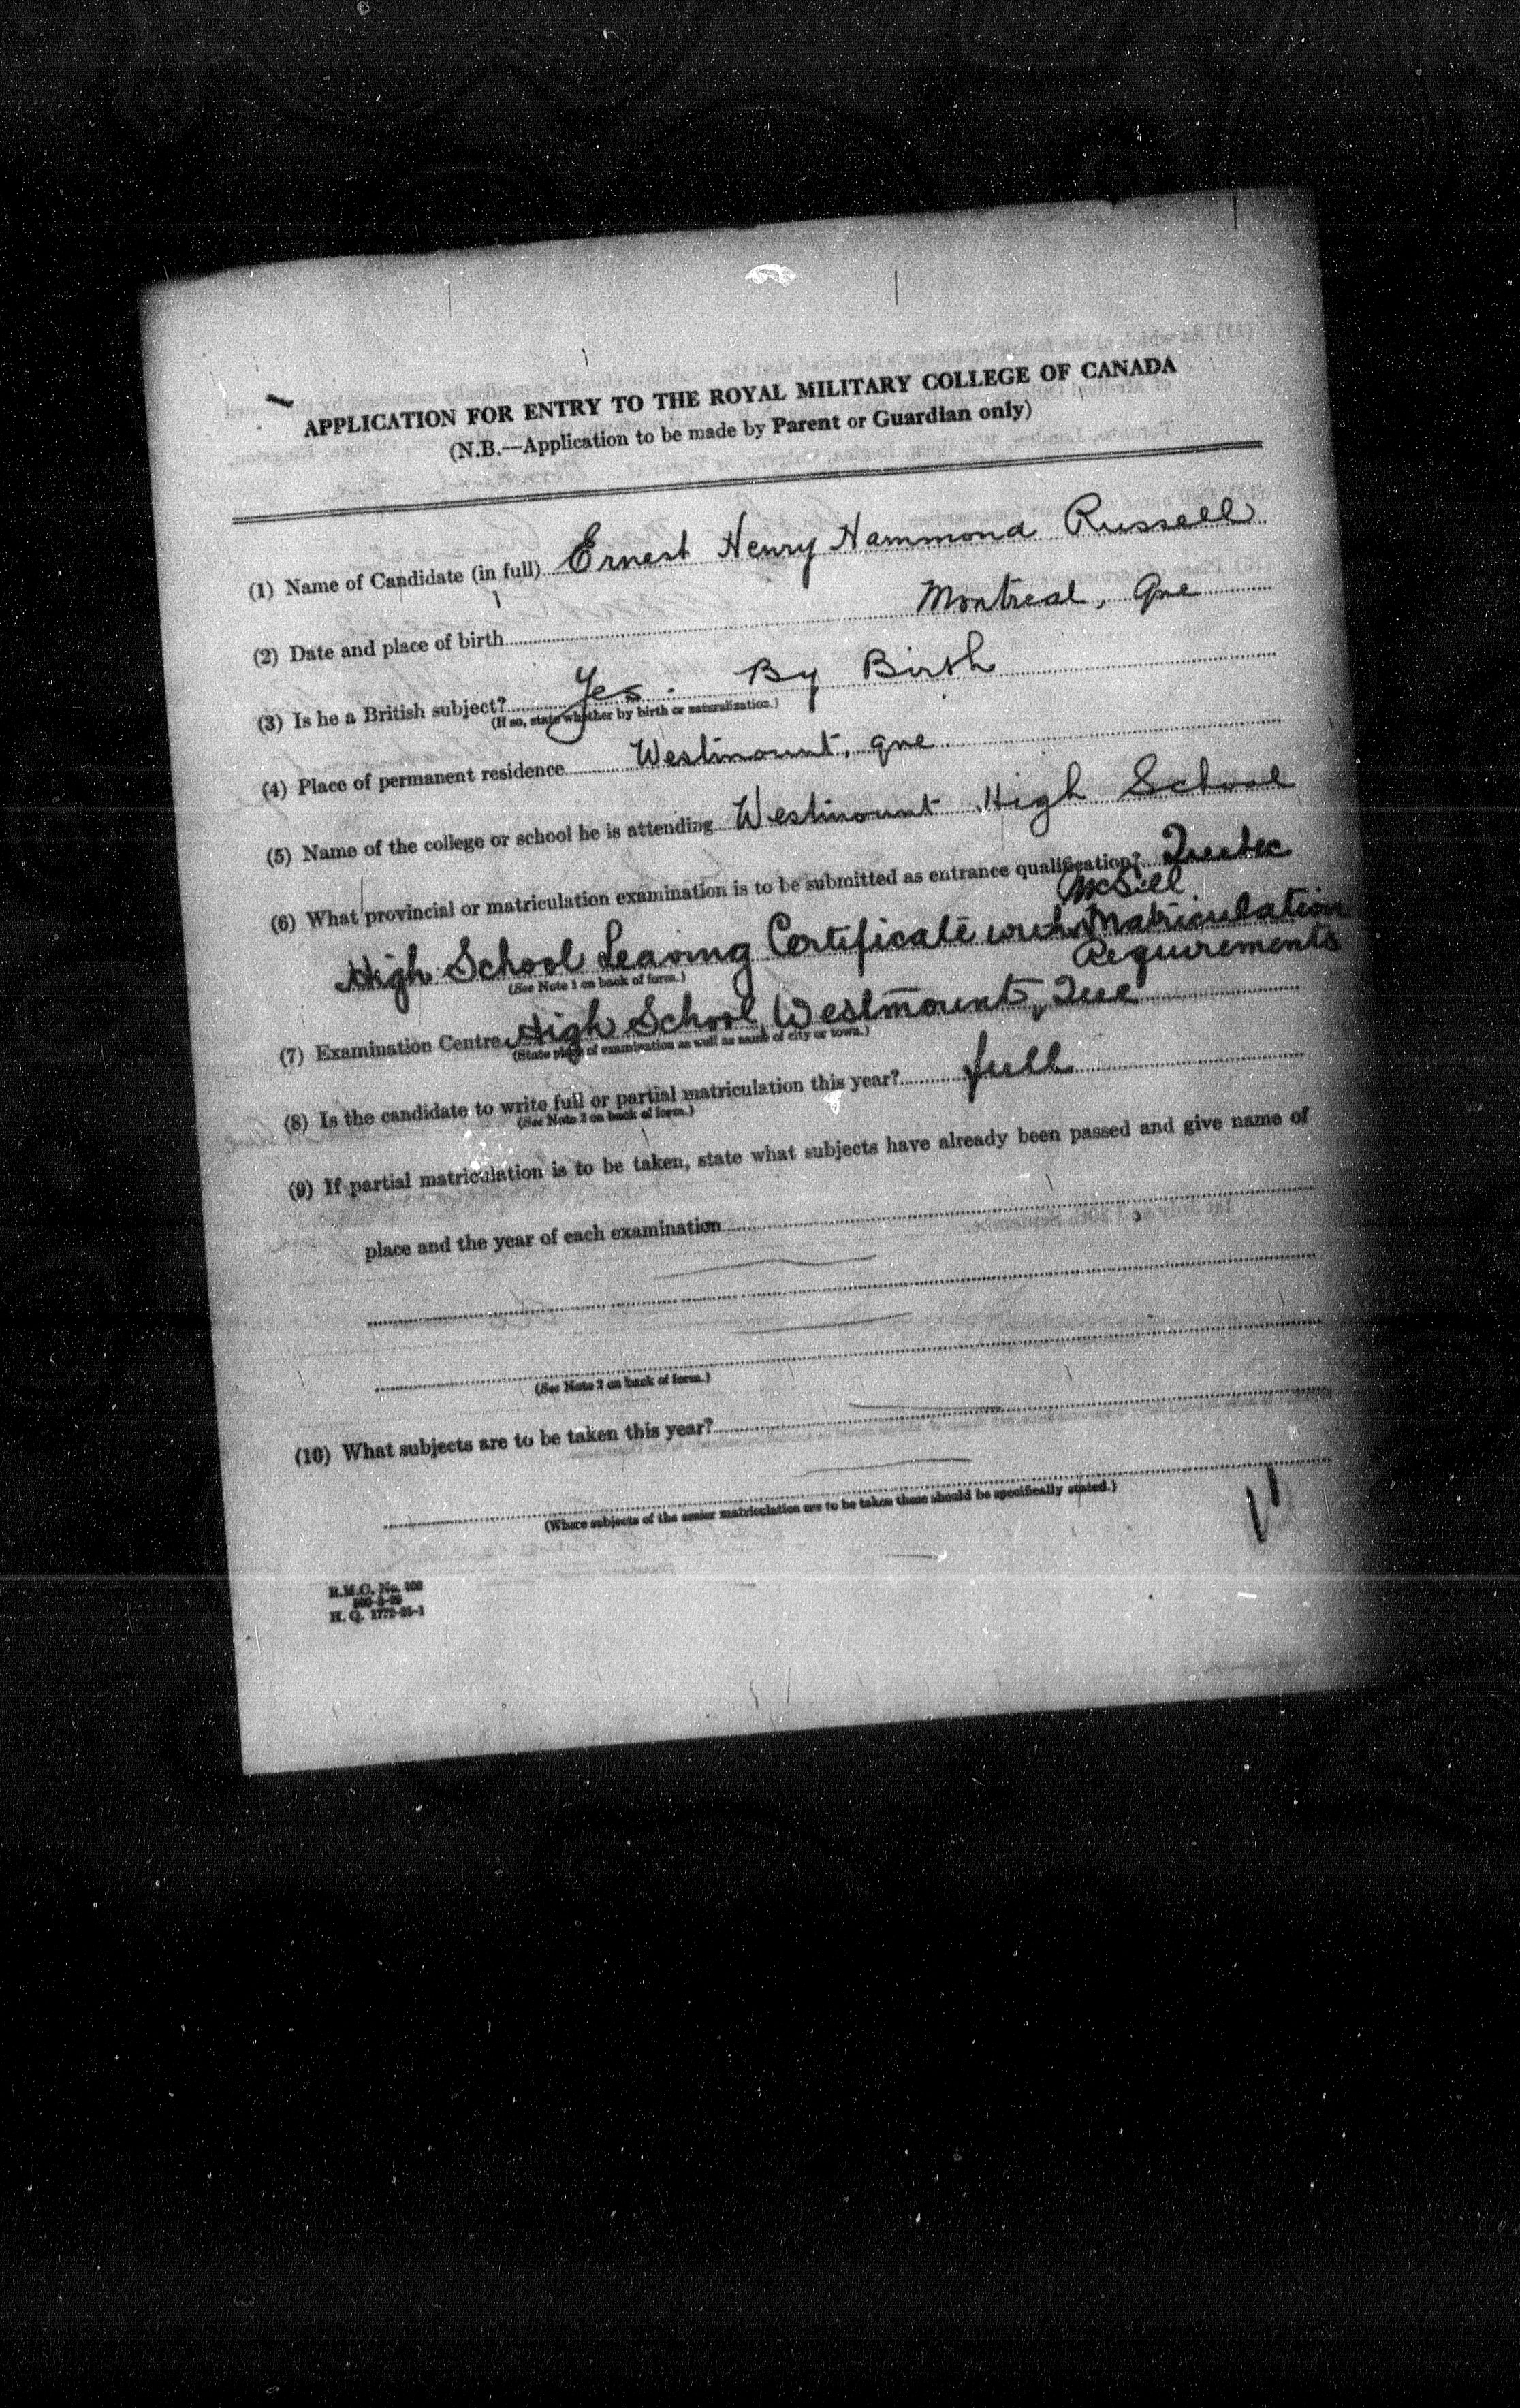 APPLICATION FOR ENTRY TO THE ROYAL MILITARY COLLEGE OF CANADA
(N.B.—Application to be made by Parent or Guardian only)
(1) Name of Candidate (in full) Ernest Henry Hammond Russell
(2) Date and place of birth Montreal, Que
(3) Is he a British subject? Yes. By Birth
(If so, state whether by birth or naturalization.)
(4) Place of permanent residence Westmount, que
(5) Name of the college or school he is attending Westmount High School
(6) What provincial or matriculation examination is to be submitted as entrance qualification? Quebec
McGill
High School Leaving Certificate with Matriculation
Requirements
(See Note 1 on back of form.)
(7) Examination Centre High School, Westmount, Que
(State place of examination as well as name of city or town.)
(8) Is the candidate to write full or partial matriculation this year? full
(See Note 2 on back of form.)
(9) If partial matriculation is to be taken, state what subjects have already been passed and give name of
place and the year of each examination
(See Note 2 on back of form.)
(10) What subjects are to be taken this year?
(Where subjects of the senior matriculation are to be taken these should be specifically stated.)
R.M.C. No.
H. Q. 1772-25-1